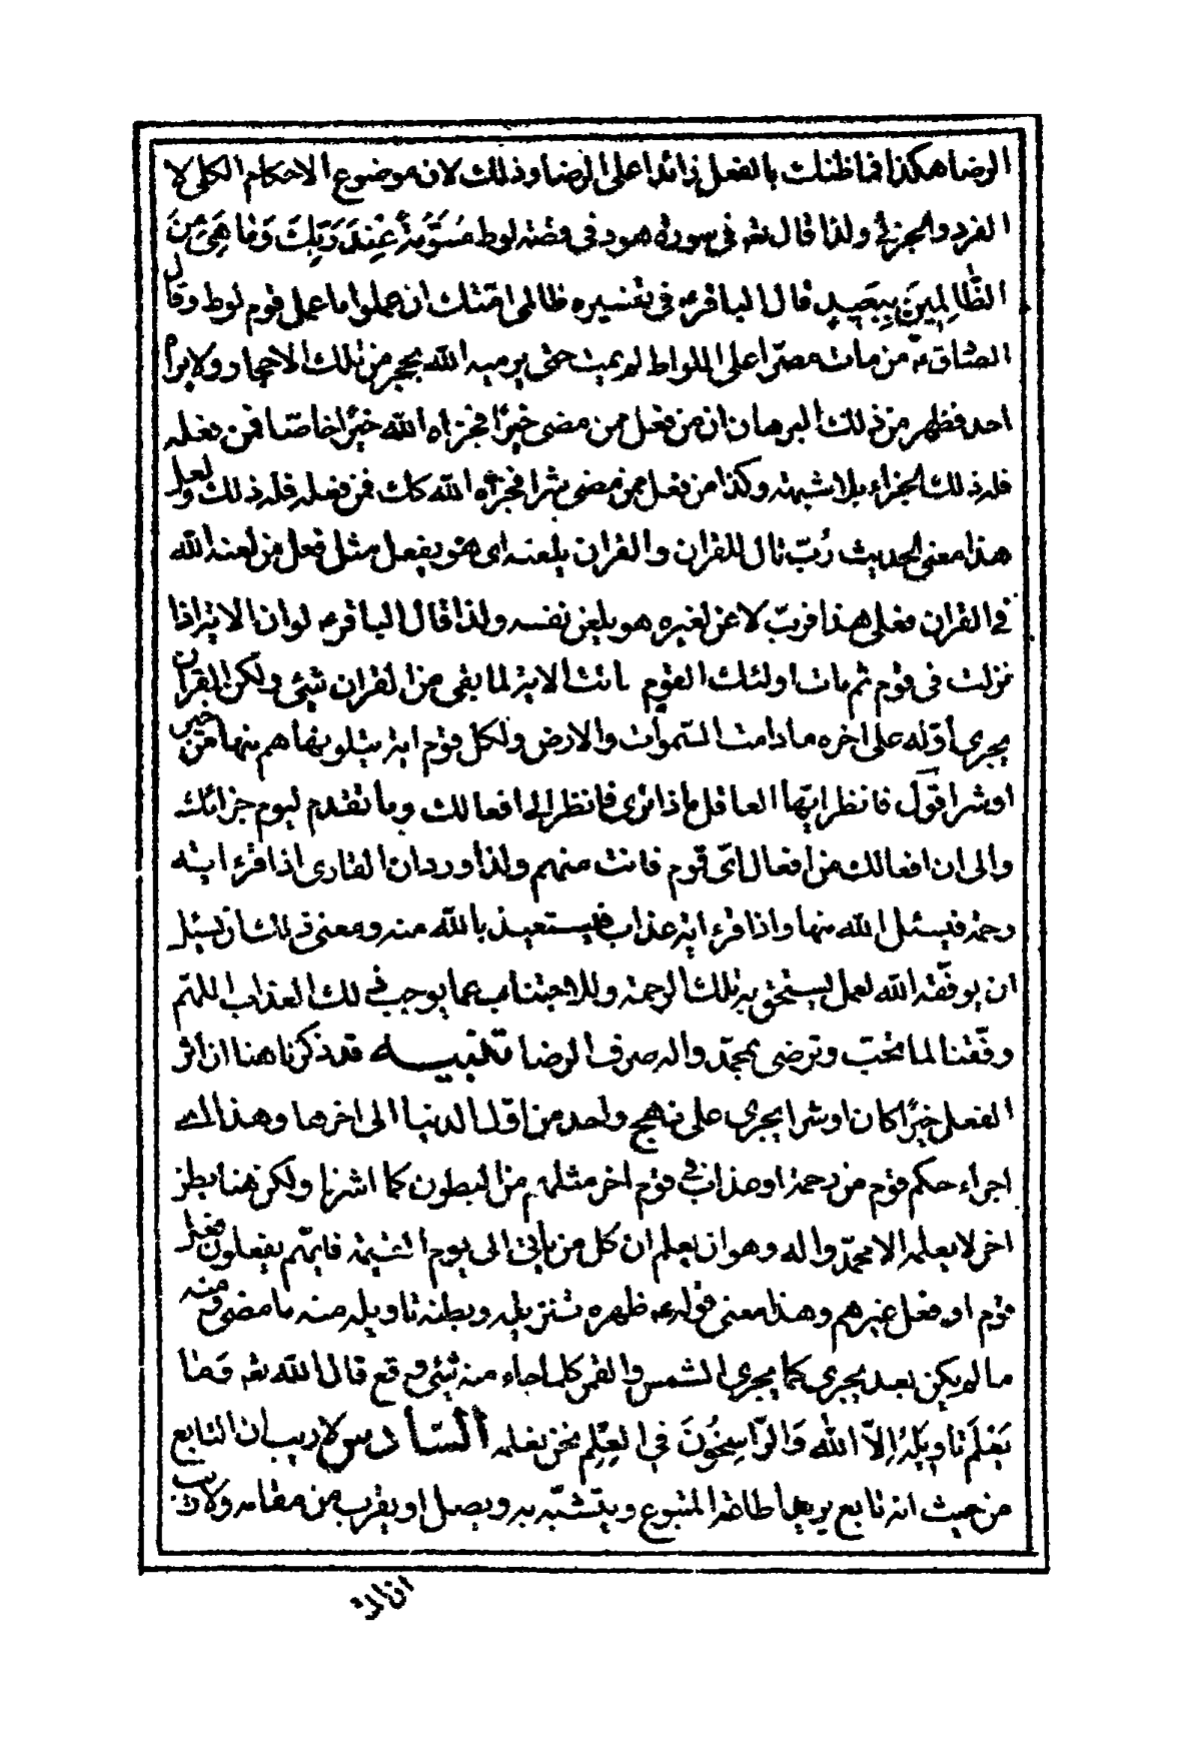 الرضا هكذا فما ظنك بالفعل زائدا على الرضا وذلك لان موضوع الاحكام الكلى لا
الفرد والجزئى ولذا قال تعه فى سورة هود فى قصة لوط مُسَوَّمَةً عِنْدَ رَبِّكَ وَمَا هِىَ مِنَ
الظَّالِمِينَ بِبَعِيدٍ قال الباقرء فى تفسيره ظالمى امتك ان عملوا ما عمل قوم لوط وقال
الصادق ع من مات مصرّا على اللواط لم يمت حتى يرميه الله بحجر من تلك الاحجار ولا يراه
احد فظهر من ذلك البرهان ان من فعل ممن مضى خيرًا فجزاه الله خيرًا خاصّا فمن فعله
فله ذلك الجزاء بلا شبهة وكذا من فعل ممن مضى شرا فجزاه الله كك فمن فعله فله ذلك ولعل
هذا معنى الحديث رُبّ تال للقران والقران يلعنه اى هو يفعل مثل فعل من لعنه الله
فى القران فعلى هذا فربّ لاعن لغيره هو يلعن نفسه ولذا قال الباقرء لو ان الاية اذا
نزلت فى قوم ثم مات اولئك القوم ماتت الاية لما بقى من القران شيئ ولكن القران
يجرى اوّله على اخره ما دامت السّموات والارض ولكل قوم اية يتلونها هم منها من خير
او شر اقول فانظر ايّها العاقل ماذا ترى فانظر الى افعالك وما تقدم ليوم جزائك
والى ان افعالك من افعال اىّ قوم فانت منهم ولذا ورد ان القارى اذا قرء اية
رحمة فيسئل الله منها واذا قرء اية عذاب فليستعيذ بالله منه ومعنى ذلك ان يسئل
ان يوفّقه الله لعمل يستحق به تلك الرحمة وللاجتناب عما يوجب ذلك العذاب اللهّم
وفّقنا لما تحبّ وترضى بمحمّد واله صرف الرضا تنبيه قد ذكرنا هنا ان اثر
الفعل خيرًا كان او شرا يجرى على نهج واحد من اوّل الدنيا الى اخرها وهذا
اجراء حكم قوم من رحمة او عذاب فى قوم اخر مثلهم من البطون كما اشرنا ولكن هنا بطن
اخر لا يعلمه الا محمّد واله وهو ان يعلم ان كل من ياتى الى يوم القيمة فايّهم يفعلون فعل
قوم او فعل غيرهم وهذا معنى قوله ع ظهره تنزيله وبطنه تاويله منه ما مضى ومنه
ما لم يكن بعد يجرى كما يجرى الشمس والقمر كلما جاء منه شيئ وقع قال الله تعه وَمَا
يَعْلَمُ تَاوِيلَهُ اِلاّ الله وَالرّاسِخُونَ فِى العِلْمِ نحن نعلمه السّادس لا ريب ان التابع
من حيث انه تابع يريد اطاعة المتبوع ويتشبّه به ويصل او يقرب من مقامه ولا ريب
ان اله